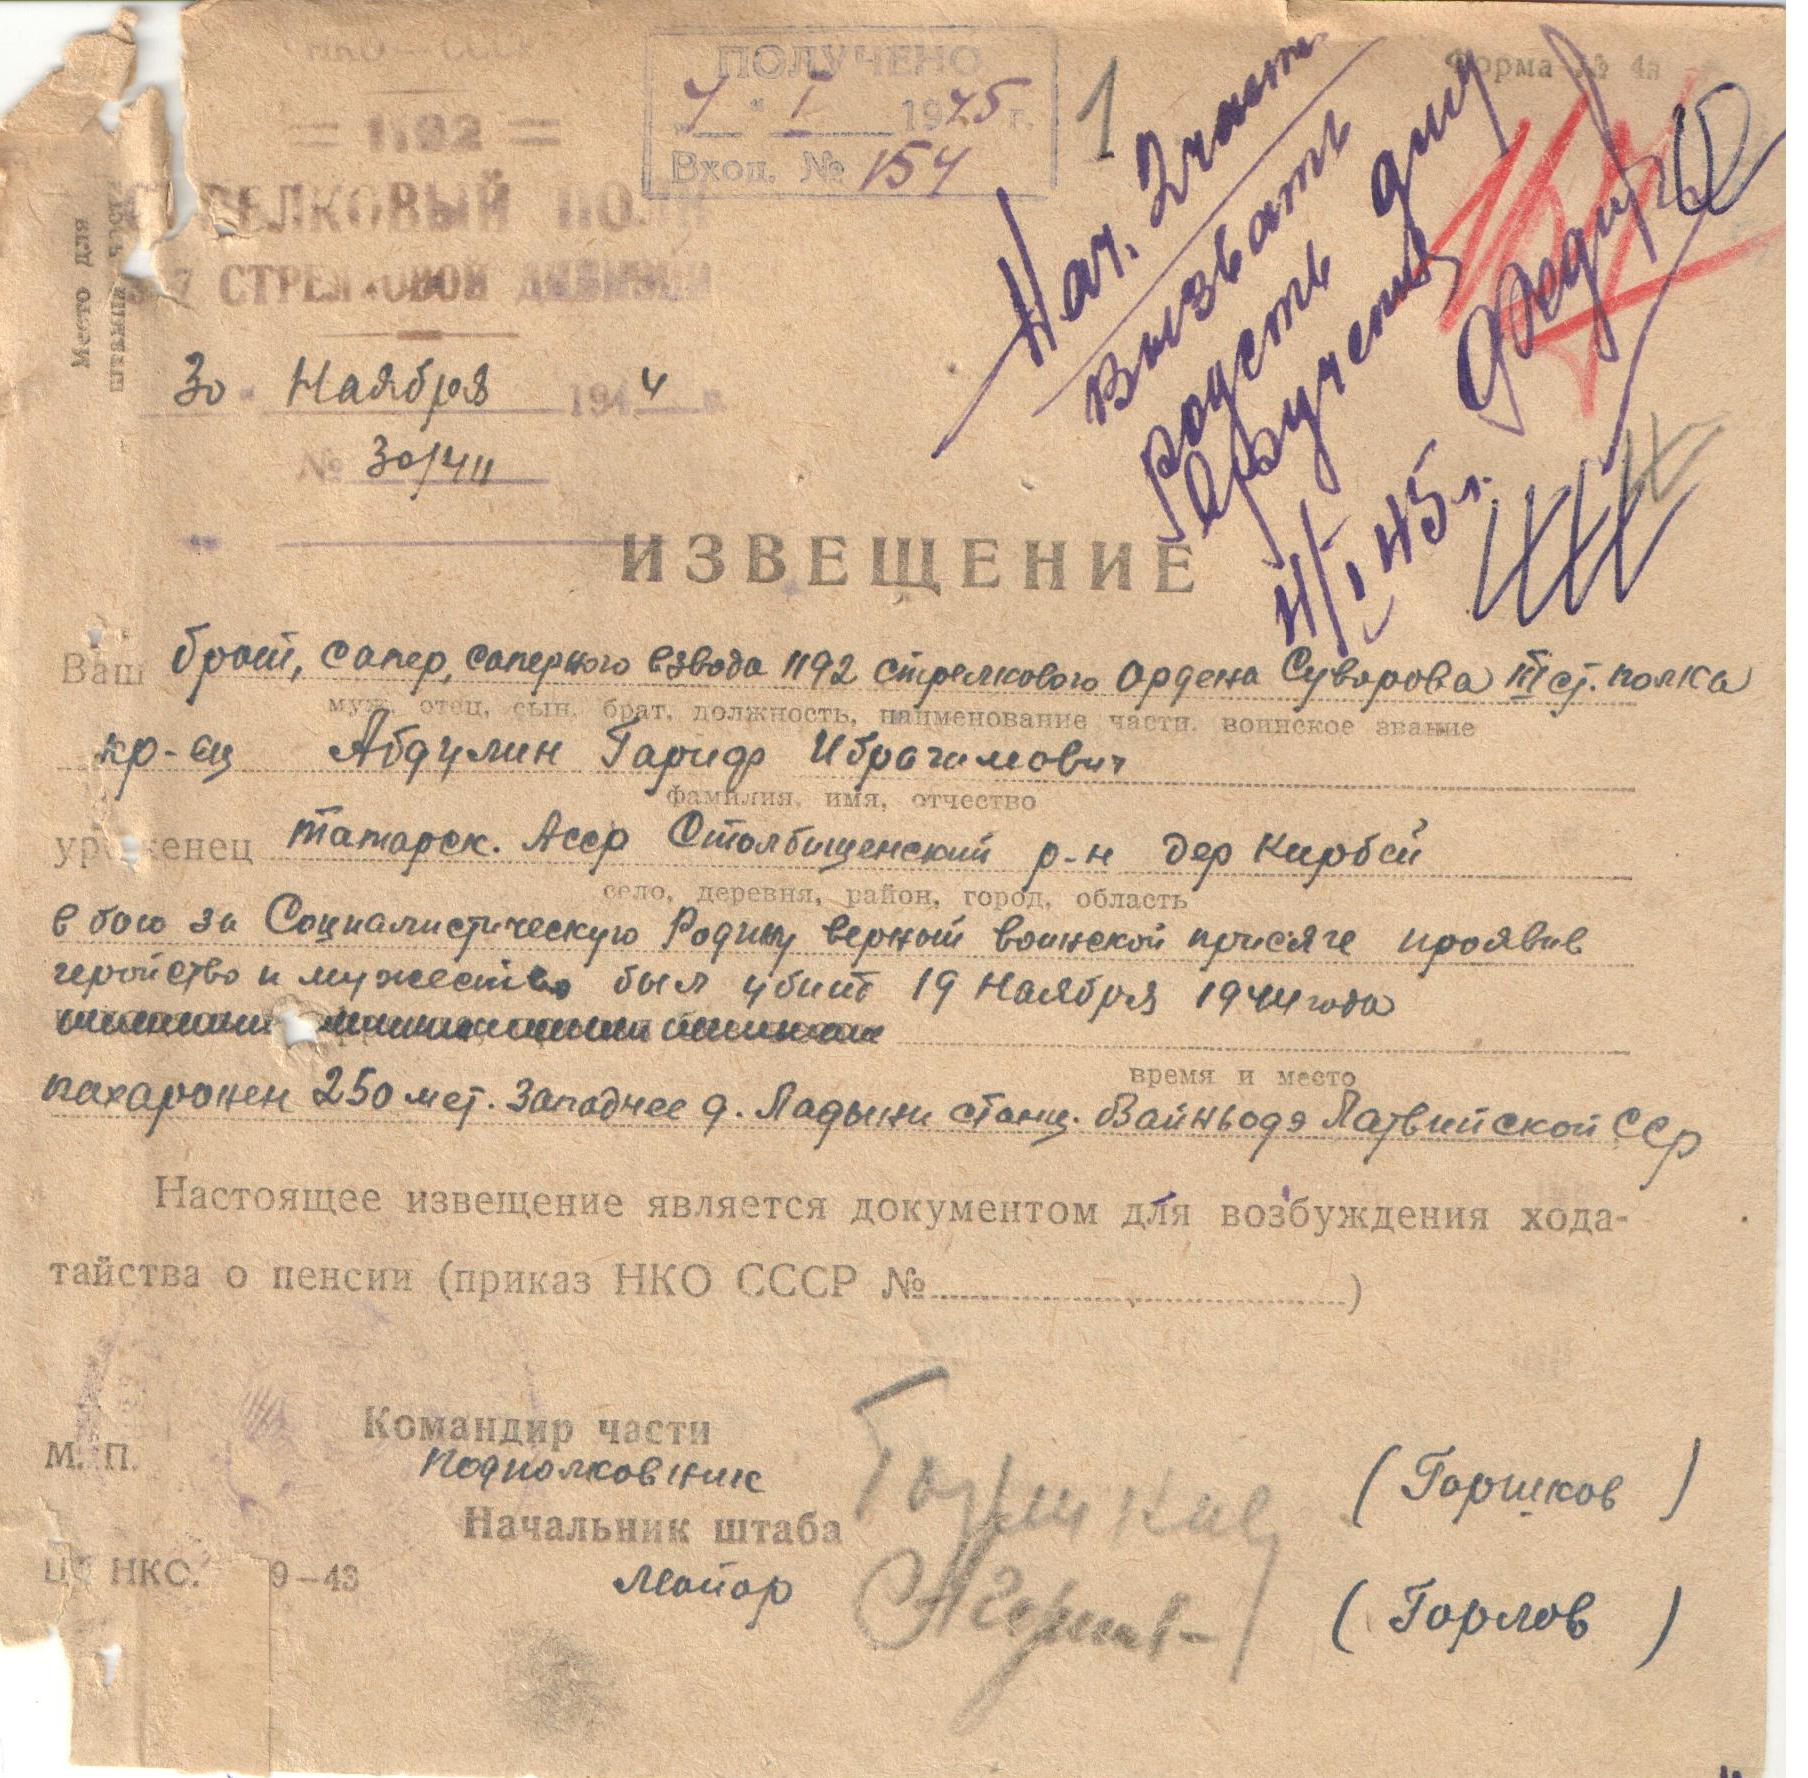 НКО — СССР
ПОЛУЧЕНО
„4" I 1945 г.
Вход. № 154
1
Форма № 4а
= 1192 =
СТРЕЛКОВЫЙ ПОЛК
СТРЕЛКОВОЙ ДИВИЗИИ
Место для
штампа части
30 " Наября 1944 г.
№ 30/411
Нач. 2 части
вызвать
родств для
вручения
4/I 45 г.
ИЗВЕЩЕНИЕ
Ваш брат, сапер, саперного взвода 1192 стрелкового Ордена Суворова III ст. полка
муж, отец, сын, брат, должность, наименование части, воинское звание
кр-ец Абдулин Гариф Ибрагимович
фамилия, имя, отчество
уроженец Татарск. Асср Столбищенский р-н дер Кирбей
село, деревня, район, город, область
в бою за Социалистическую Родину верный воинской присяге проявив
геройство и мужество был убит 19 Наября 1944 года
время и место
пахаронен 250 мет. Западнее д. Ладыни станц. Вайньодэ Латвийской ССР
Настоящее извещение является документом для возбуждения хода-
тайства о пенсии (приказ НКО СССР № )
М. П.
Командир части
Подполковник (Горшков)
Начальник штаба
Майор (Горлов)
НКО. 9—43